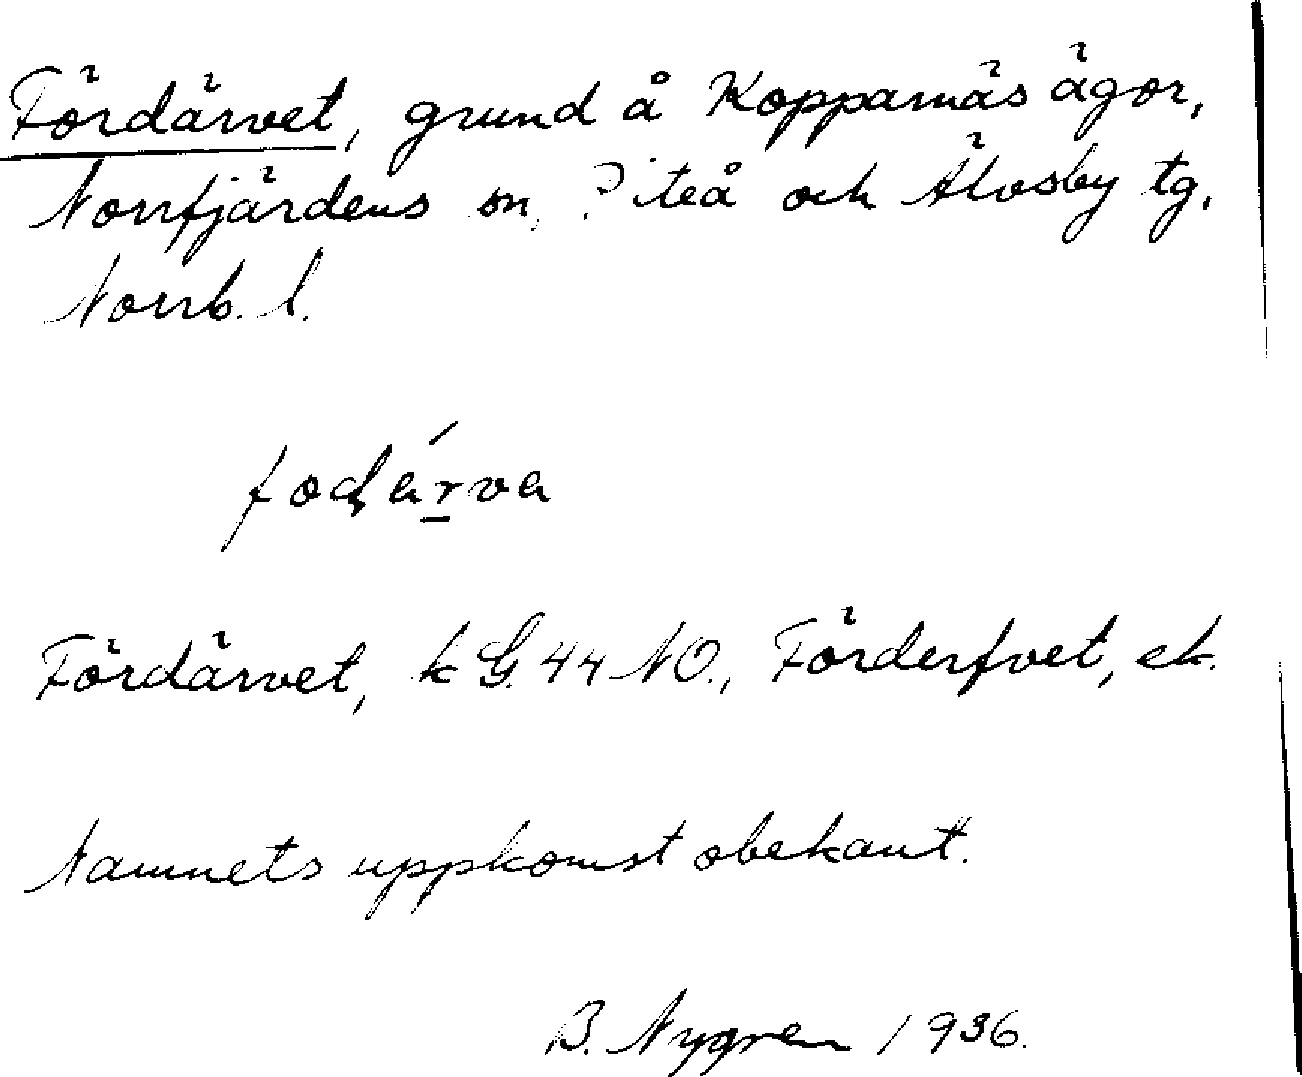 Fördärvet, grund å Kopparnäs ägor,
Norrfjärdens sn, Piteå och Älvsby tg.
Norrb. l.
fodárva
Fördärvet, k G. 44 NO., Förderfvet, ek.
Namnets uppkomst obekant.
B. Nygren 1936.